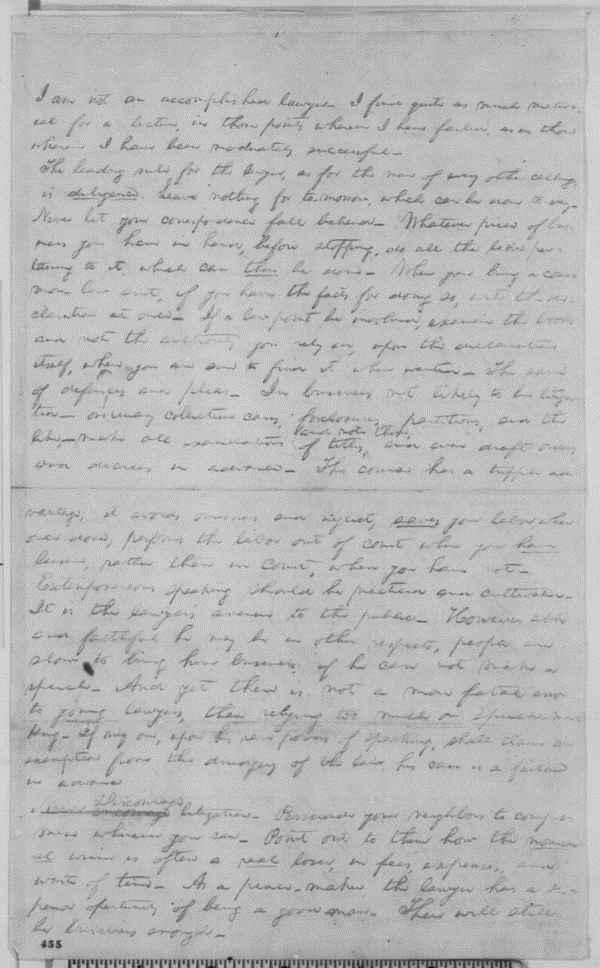 I am not an accomplished lawyer. I find quite as much mater-
ial for a lecture, in those points wherein I have failed, as in those
wherein I have been moderately successful.
The leading rule, for the lawyer, as for the man of every other calling,
is diligence. Leave nothing for to-morrow, which can be done to-day.
Never let your correspondence fall behind. Whatever piece of busi-
ness you have in hand, before stopping, do all the labor per-
taining to it which can then be done. When you bring a com-
mon-law suit, if you have the facts for doing so, write the de-
claration at once. If a law point be involved, examine the books
and note the authority you rely on, upon the declaration
itself, where you are sure to find it when wanted. The same
of defences and pleas. In business not likely to be litiga-
tion- ordinary collection cases, foreclosures, partitions, and the
like,- make all examinations of titles, and note them, and even draft orders
and decrees in advance. This course has a tripple ad-
vantage; it avoids omissions and neglect, saves your labor when
once done; performs the labor out of court when you have
leisure, rather than in court, when you have not.
Extemporaneous speaking should be practiced and cultivated.
It is the lawyer's avenue to the public. However able
and faithful he may be in other respects, people are
slow to bring him business, if he can not make a
speech. And yet there is not a more fatal error
to young lawyers, than relying too much on speech-ma-
king. If any one, upon his rare powers of speaking, shall claim an
exemption from the drudgery of the law, his case is a failure
in advance.
Discourage litigation. Persuade your neighbors to compro-
mise whenever you can. Point out to them how the nomin-
al winner is often a real loser, in fees, expenses, and
waste of time. As a peace-maker the lawyer has a su-
perior opertunity of being a good man. There will still
be business enough.
455